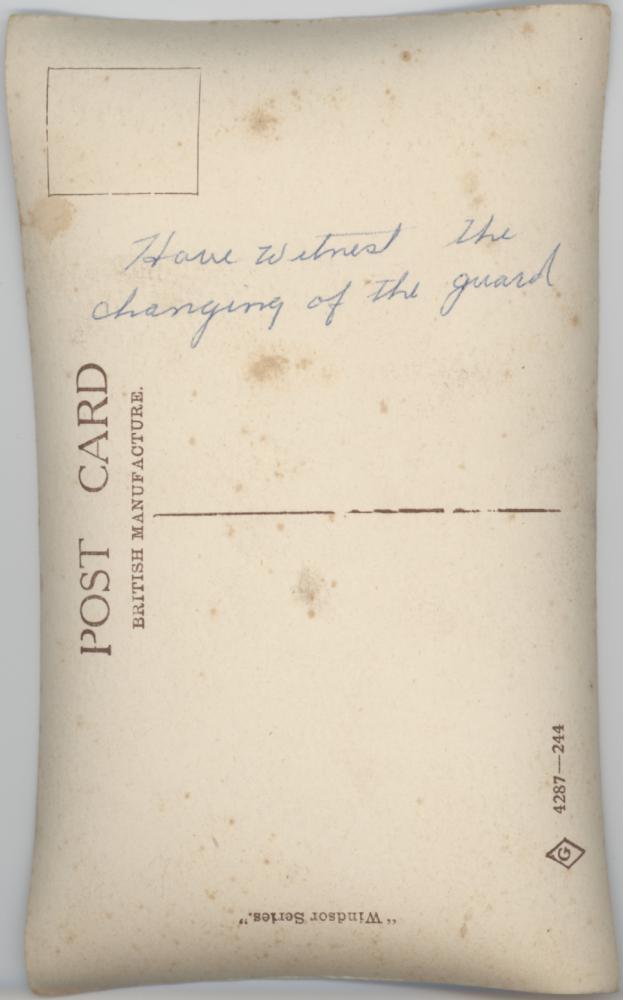 Have witnest the
changing of the guard
POST CARD
BRITISH MANUFACTURE.
4287—244
G
"Windsor Series."